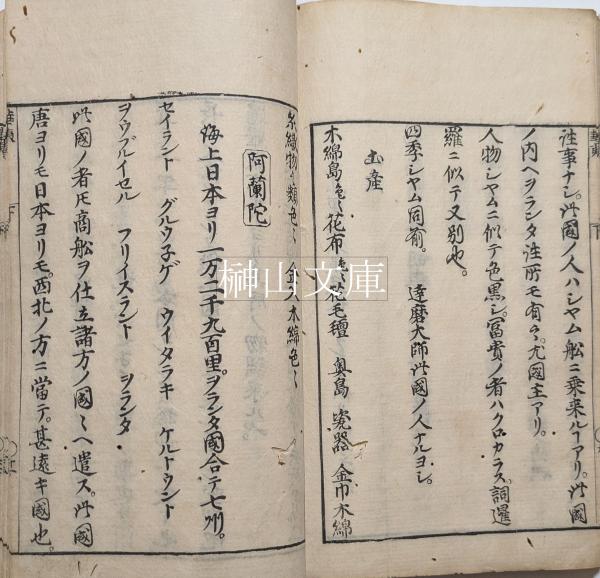 往事ナシ。此國ノ人ハシャム船ニ乗来ルヿアリ。此國
ノ内ヘヲランダ住所モ有ク。尤國主アリ。
人物シャムニ似テ色黒シ。冨貴ノ者ハクロカラス。詞暹
羅ニ似テ又別也。
四季シャム同前。 達磨大師此國ノ人ナルヨシ。
土産
木綿島色〻 花布色〻 花毛氊 奥島 瓷器 金巾木綿
糸織物ノ類色〻 金入木綿色〻
阿蘭陀
海上日本ヨリ一万二千九百里。ヲランダ國合テ七州。
セイラント グルウ子ゲ ウイタラキ ケルトウント
ヲウブルイセル フリイスラント ヲランタ
此國ノ者𪜈商舩ヲ仕立諸方ノ國〻ヘ遣ス。此國
唐ヨリモ日本ヨリモ。西北ノ方ニ當テ。甚遠キ國也。
榊山文庫